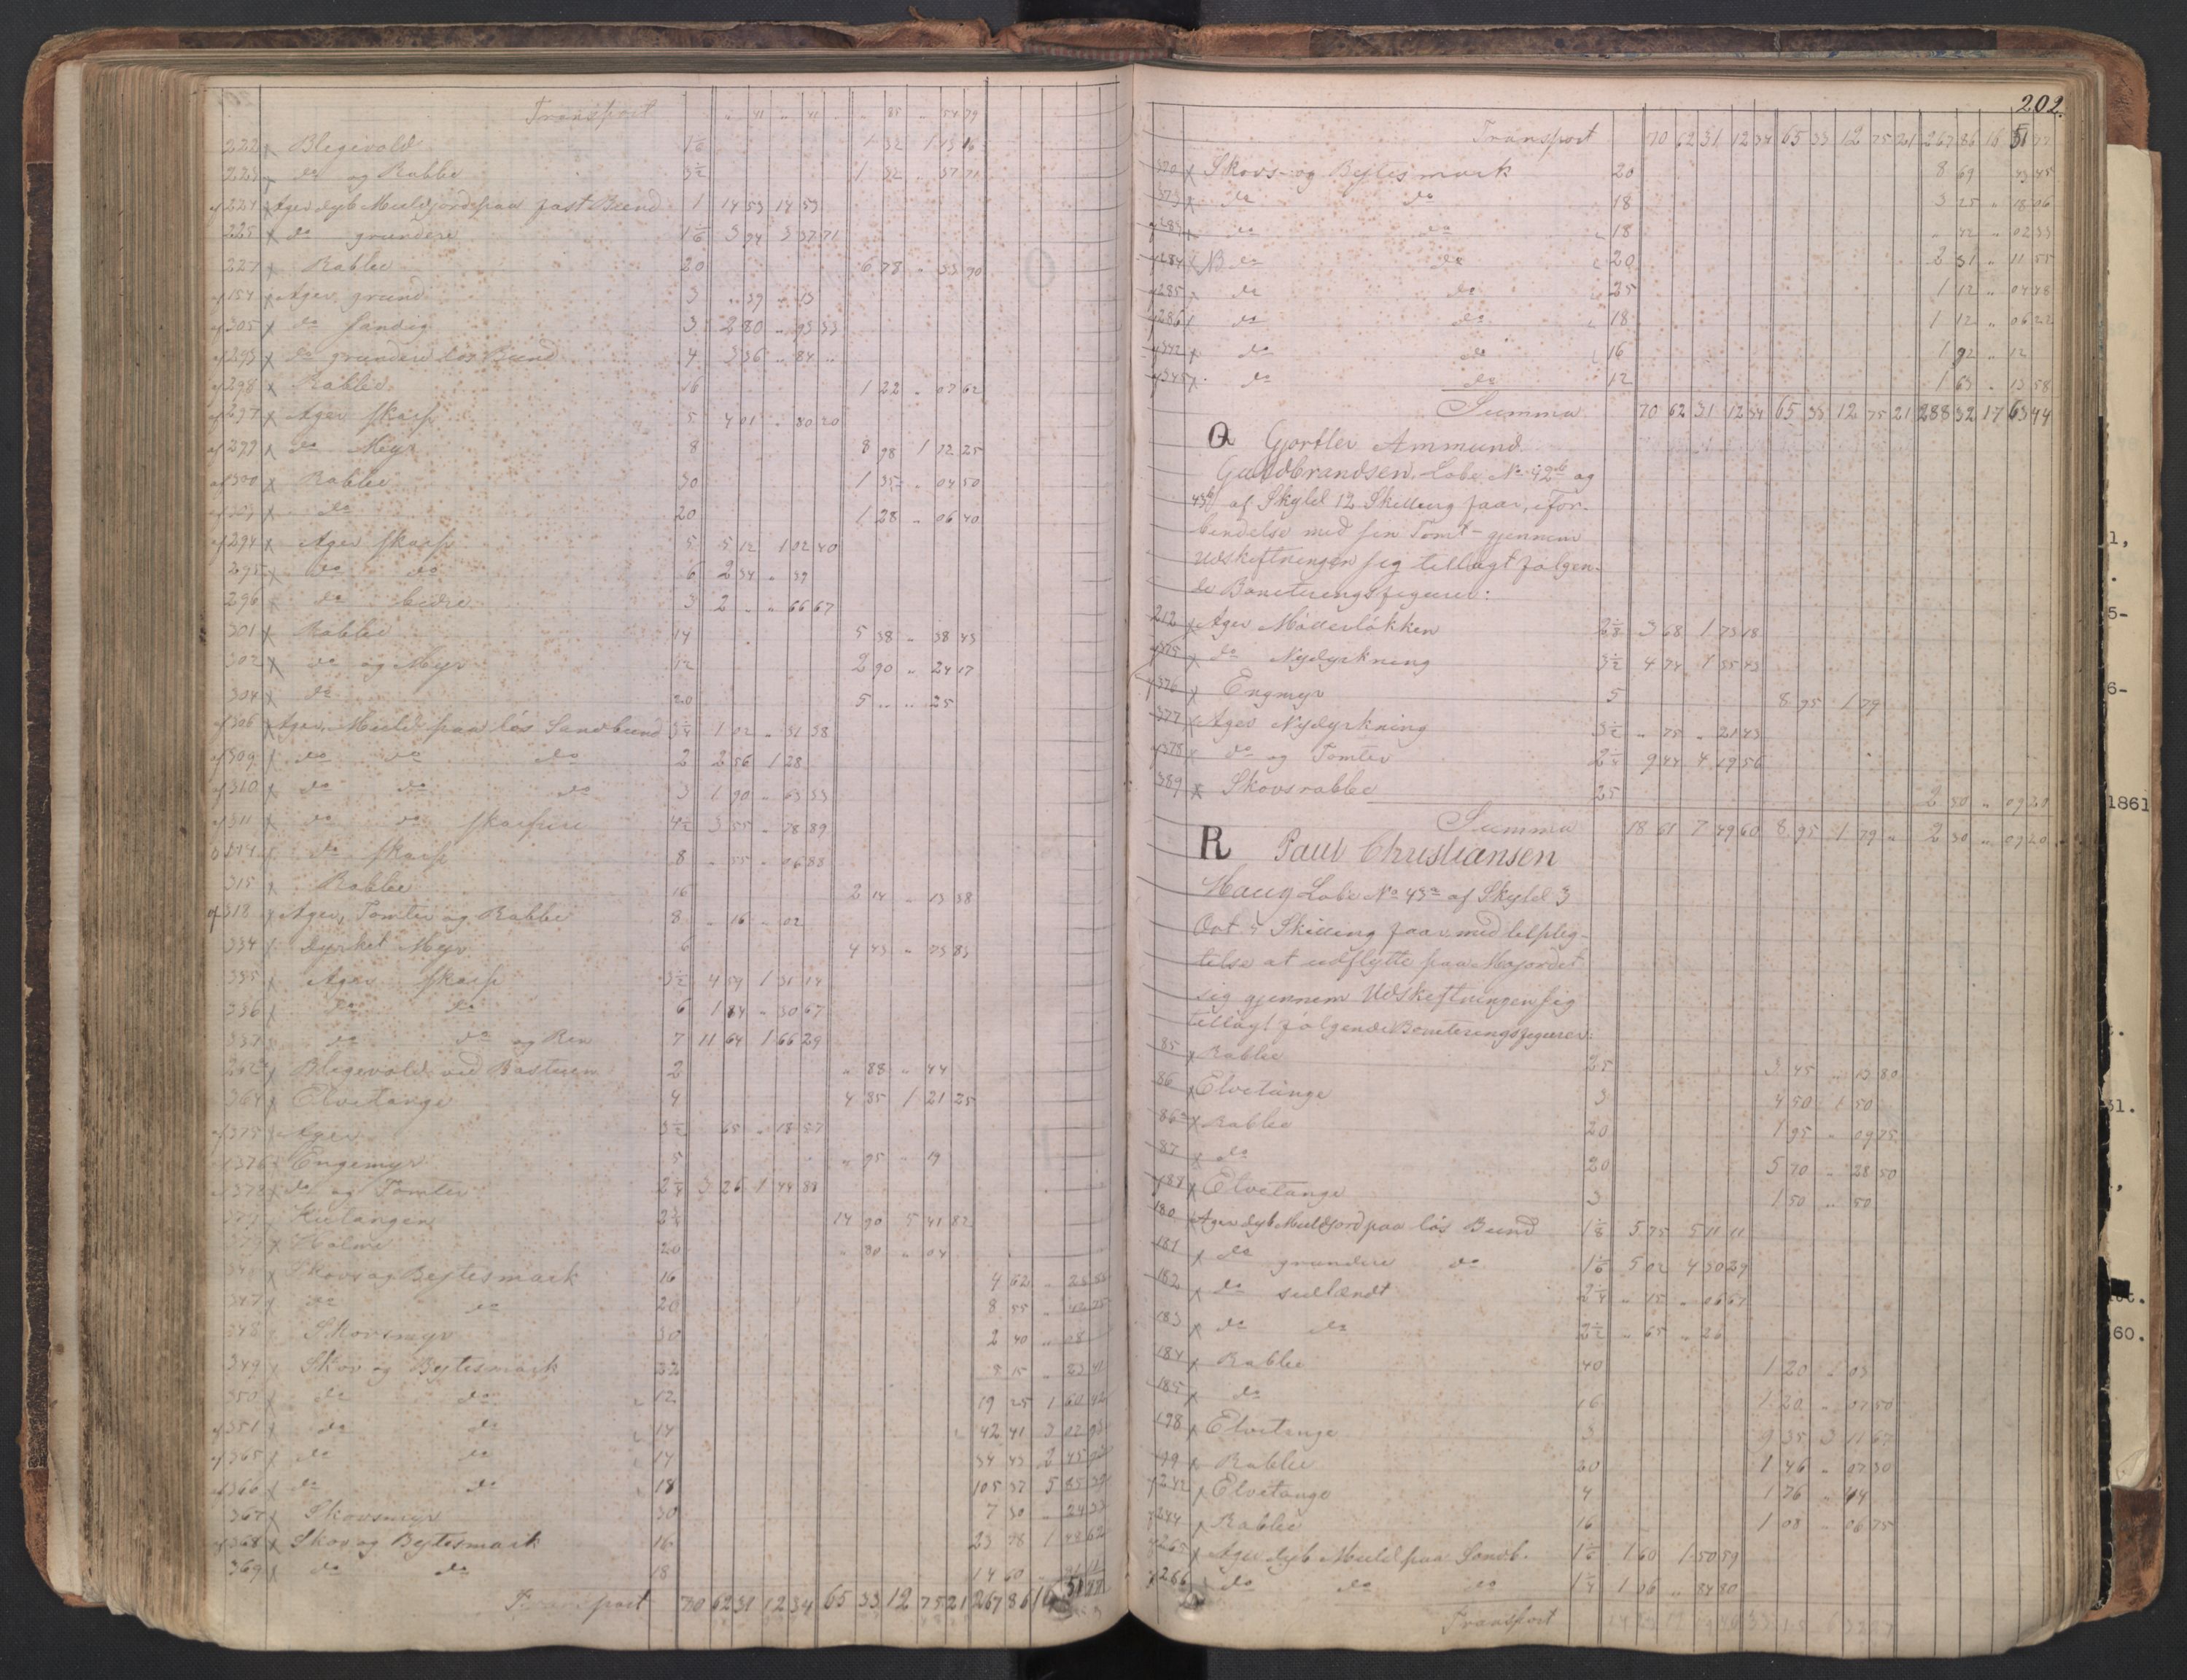 Transport " 41 " 41 " 85 " 54 79
222 x Blegevold 1 1/6 1 32 1 13 16
223 x do og Rabbe 3 1/2 1 32 " 37 71
af 224 x Ager dyb Muldjord paa fast Bund 1 14 53 14 53
225 x do grundere 1 1/6 3 94 3 37 71
227 x Rabbe 20 6 78 " 33 90
af 154 x Ager, grund 3 " 39 " 13
af 305 x do sandig 3 2 80 " 93 33
af 293 x do grundere løs Bund 4 3 36 " 84 "
af 298 x Rabbe 16 1 22 " 07 62
af 297 x Ager skarp 5 4 01 " 80 20
af 299 x do Myr 8 8 98 1 12 25
af 300 x Rabbe 30 1 35 " 04 50
do 20 1 28 " 06 40
af 294 x Ager skarp 5 5 12 1 02 40
295 x do do 6 2 34 " 39
296 x do bedre 3 2 " " 66 67
301 x Rabbe 14 5 38 " 38 43
302 x do og Myr 12 2 90 " 24 17
304 x do 20 5 " " 25
af 306 x Ager, Muld paa løs Sandbund 3 1/4 1 02 " 31 38
af 309 x do do do 2 2 56 1 28
af 310 x do do do 3 1 90 " 63 33
af 311 x do do skarpere 4 1/2 3 55 " 78 89
314 x do skarp 8 " 55 " 06 88
315 x Rabbe 16 2 14 " 13 38
af 318 x Ager, Tomter og Rabbe 8 " 16 " 02
334 x dyrket Myr 6 4 43 " 73 83
335 x Ager skarp 3 1/2 4 59 1 31 14
336 x do do 6 1 84 " 30 67
337 x do do og Ren 7 11 64 1 66 29
x Blegevold ved Bastuen 2 " 88 " 44
364 x Elvetange 4 4 85 1 21 25
af 375 x Ager 3 1/2 " 65 " 18 57
af 376 x Engemyr 5 " 95 " 19
af 378 x do og Tomter 2 1/4 3 26 1 44 88
Kulangen 2 3/4 14 90 5 41 82
x Holme 20 " 80 " 04
x Skov og Bejtesmark 16 4 62 "
347 x do do 20 8 55 "
348 Skovsmyr 30 2 40 " 08
349 x Skov og Bejtesmark 22 5 15 " 23 41
350 x do do 12 19 25 1 60 42
af 351 x do do 14 42 41 3 02 93
af 365 x do do 14 34 43 2 45 93
af 366 x do do 18 105 37 5 85 39
367 x Skovsmyr 30 7 30 " 24 33
af 368 x Skov og Bejtesmark 16 23 78 1 48 62
369 x do do 18 14 60 "
Transport 70 62 31 12 34 65 33 12 75 21 267 86 16 51 77
202.
Transport 70 62 31 12 34 65 33 12 75 21 267 86 16 51 77
370 x Skovs- og Bejtesmark 20 8 69 " 43 45
373 x do do 18 3 25 " 18 06
af 283 x do do 18 " 42 " 02 33
af 284 x NB do do 20 2 31 " 11 55
af 285 x do do 25 1 12 " 04 48
af 286 x do do 18 1 12 " 06 22
af 342 x do do 16 1 92 " 12
af 345 x do do 12 1 63 " 13 58
Summa 70 62 31 12 34 65 33 12 75 21 288 32 17 63 44
Q Gjørtler Ammund
Guldbrandsen Løbe No 42b og
43b af Skyld 12 Skilling faar, i For-
bindelse med sin Tomt – gjennem
Udskiftningen sig tillagt følgen-
de Boneterings figurer:
212 x Ager Møllerløkken 2 1/8 3 68 1 73 18
af 375 x do Nydyrkning 3 1/2 4 74 1 35 43
af 376 x Engmyr 5 8 95 1 79
377 x Ager Nydyrkning 3 1/2 " 75 " 21 43
af 378 x do og Tomter 2 1/4 9 44 4 19 56
389 x Skovsrabbe 25 2 30 " 09 20
Summa 18 61 7 49 60 8 95 1 79 " 2 30 " 09 20
R Paul Christiansen
Haug Løbe No 43a af Skyld 3
Ort 4 Skilling faar med tilplig-
telse at udflytte paa Majordet
sig gjennem Udskiftningen sig
tillagt følgende Boneteringsfigurer:
85 x Rabbe 25 3 45 " 13 80
86 x Elvetange 3 4 50 1 50
86a x Rabbe 20 1 95 " 09 75
87 x do 20 5 70 " 28 50
x Elvetange 3 1 50 " 50
180 x Ager dyb Muldjord paa løs Bund 1 1/8 5 75 5 11 11
181 x do grundere do 1 1/6 5 02 4 30 29
182 x do sidlændt 2 1/4 " 15 " 06 67
183 x do do 2 1/2 " 65 " 26
184 x Rabbe 40 1 20 " 03
185 x do 16 1 20 " 07 50
198 x Elvetange 3 9 35 3 11 67
199 x Rabbe 20 1 46 " 07 30
af 242 x Elvetange 4 1 76 " 44
af 244 x Rabbe 16 1 08 " 06 75
af 265 x Ager dyb Muld paa Sandb. 1 1/6 1 60 1 50 59
af 266 x do do do 1 1/4 1 06 " 84 80
Transport
1861
31.
60.